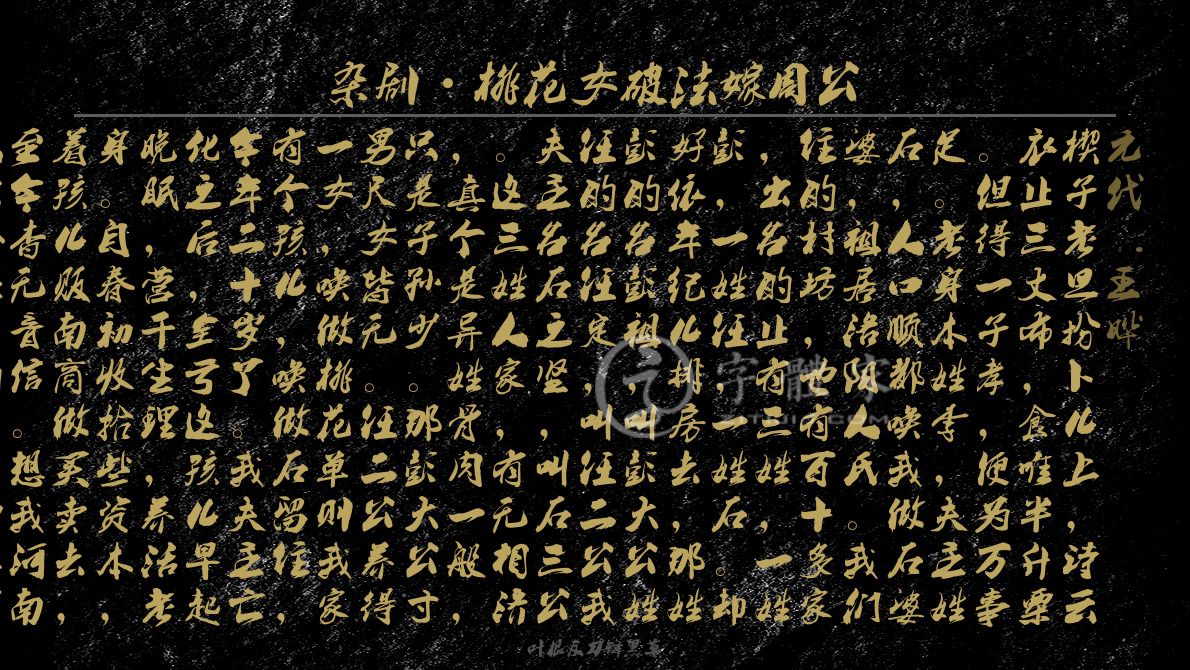 杂剧·桃花女破法嫁周公
元代·王晔
楔子老旦扮卜儿上，诗云
衣止三丈布，食唯半升粟
。但得一子孝，便为万事
足。老身本姓李，夫主姓
石，人口顺郑唤我做石婆
婆，祖居洛阳人氏。我们
住的村坊，也有百十多家
，出名的止有三姓，一姓
彭，一姓任，一姓石。却
好依年纪儿排房去，那姓
彭的名彭祖，叫彭大公姓
任的名任定，叫任二公我
夫主名石之坚，叫石三公
。这三姓人家，有无相济
，真个是异姓骨肉一般，
只是子孙少。那彭大公寸
男尺女皆无。任二公养得
一女，唤做桃花。单则我家
有个孩儿，唤做石留住，
今年二十岁了。我夫主亡
化之后，全亏这孩儿早起
晚眠，营干生理，养活老
身。自春初收拾些资本，
着孩儿贩南商做买卖去，
至今杳无音信。想我河南
字體家
ZITIJIA.COM
叶根友刀锋黑草